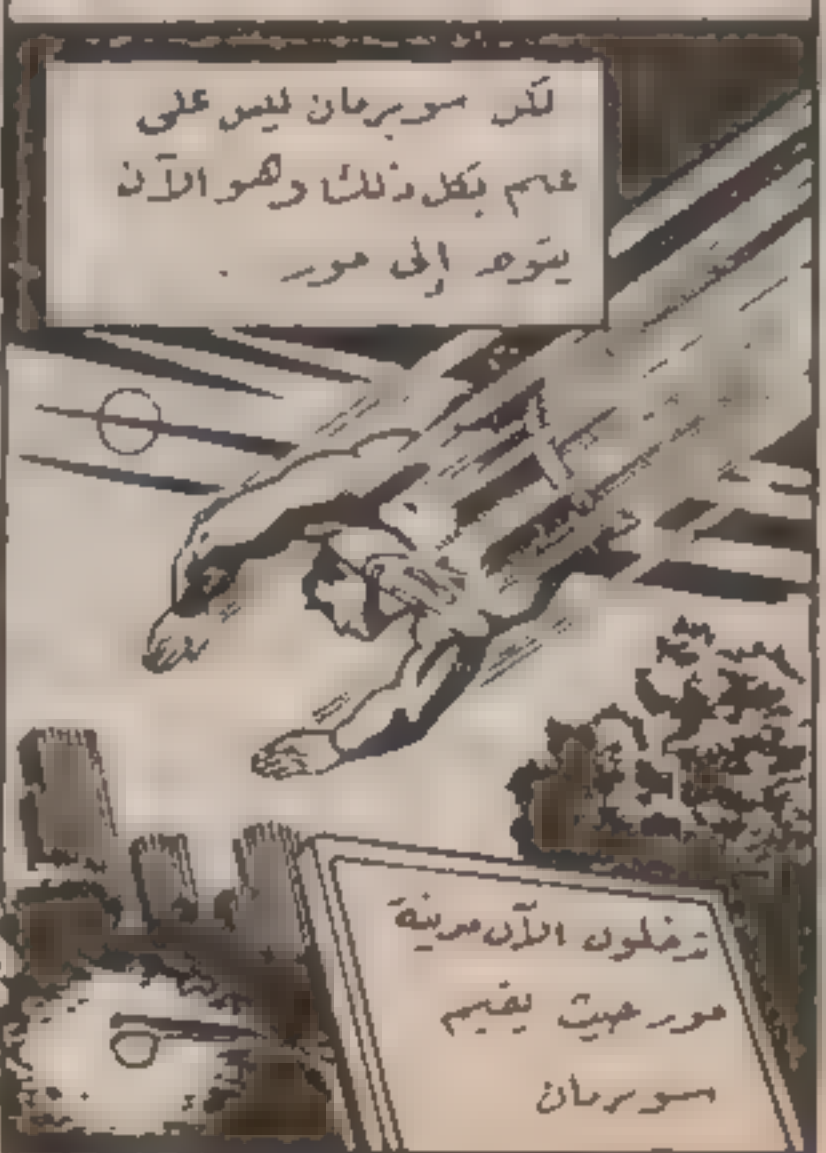 لكن سوبرمان ليس على
علم بكل ذلك وهو الآن
يتوجه إلى مور
تدخلون الآن مدينة
مور حيث يقيم
سوبرمان